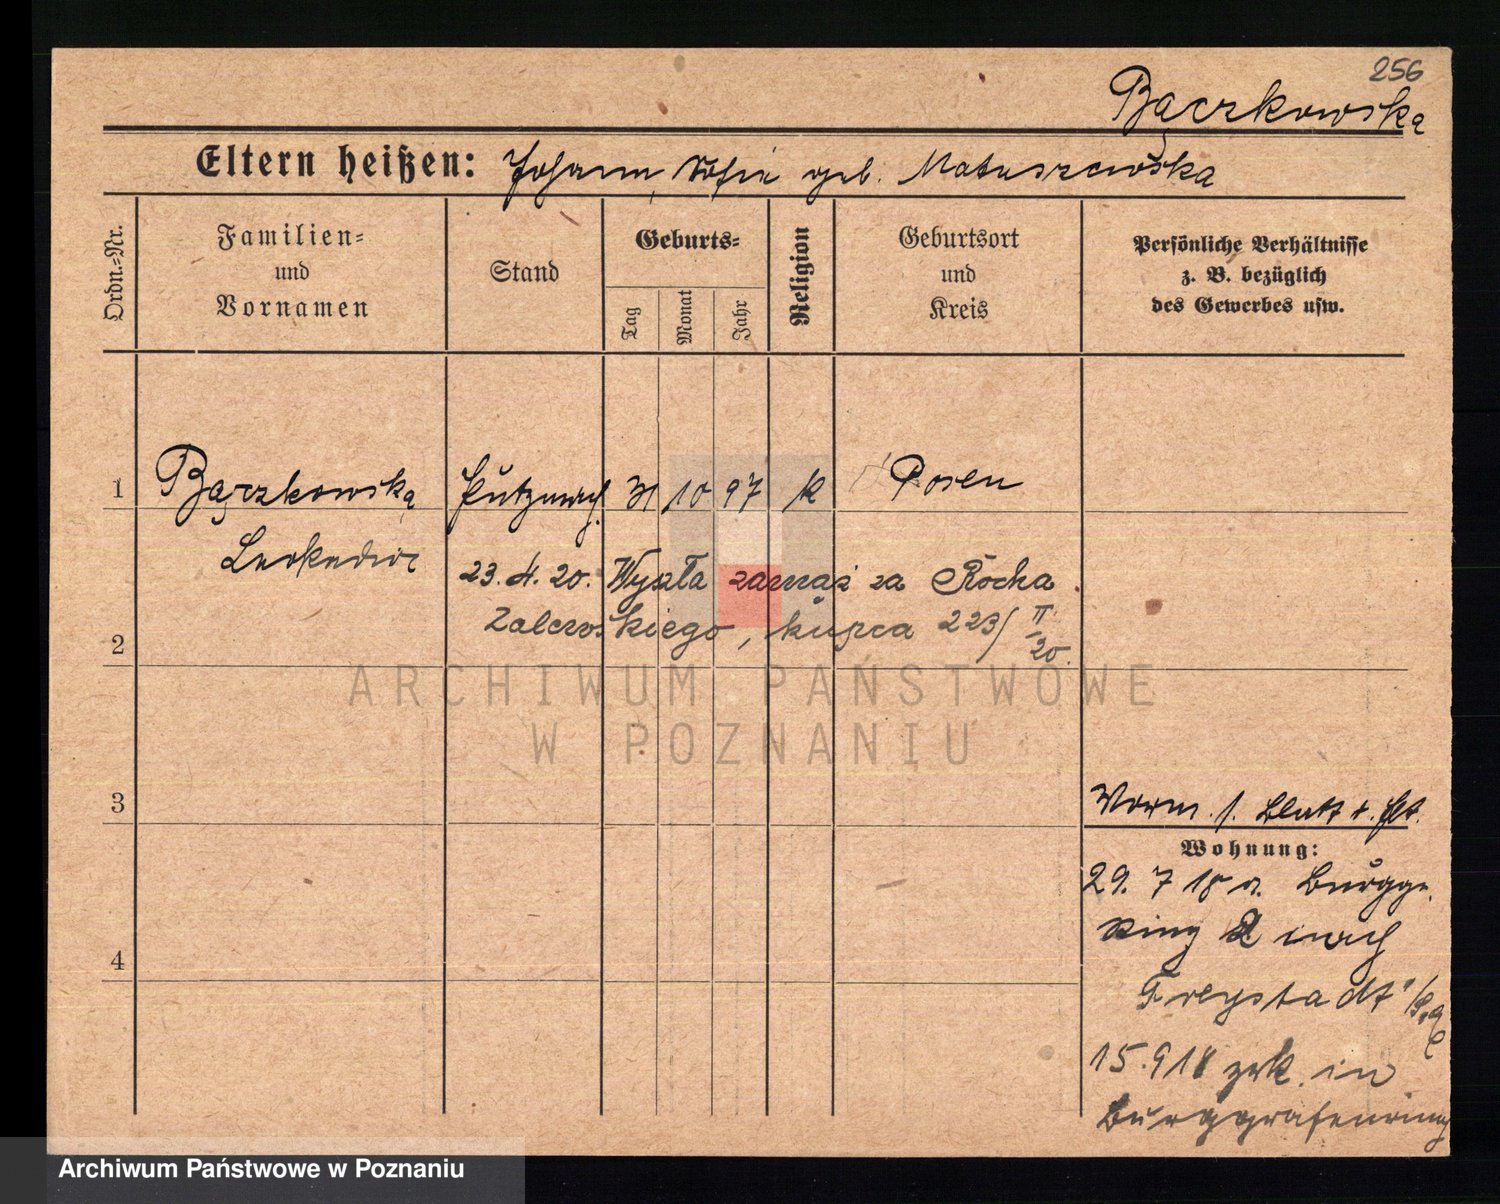 256
Bączkowska
Eltern heißen: Johann, Sofie geb. Matuszewska
Ordn.=Nr.
Familien=
und
Vornamen
Stand
Geburts=
Tag
Monat
Jahr
Religion
Geburtsort
und
Kreis
Persönliche Verhältnisse
z. B. bezüglich
des Gewerbes usw.
1 Bączkowska Putzmach. 31 10 97 k Posen
Leokadia
23. 4. 20. Wyszła zamąż za Rocha
Zalewskiego, kupca 223/II 20.
2
ARCHIWUM PAŃSTWOWE
W POZNANIU
3
Vorm. s. Blatt d. Elt.
Wohnung:
29. 7 18 v. Burggr.
Ring 2 nach
4
Freystadt
15. 9 18 zrk. in
Burggrafenring
Archiwum Państwowe w Poznaniu